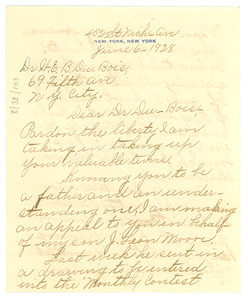 452 St Nich. Ave
NEW YORK, NEW YORK
June 6-1928
Dr. W. E. B. Du Bois,
69 Fifth Ave.
N.Y. City.
Dear Dr Du-Bois-
Pardon the liberty I am
taking in taking up
your valuable time.
Knowing you to be
a father and an under-
standing one, I am making
an appeal to you in behalf
of my son J. Leon Moore.
Last week he sent in
a drawing to be entered
into the Monthly Contest